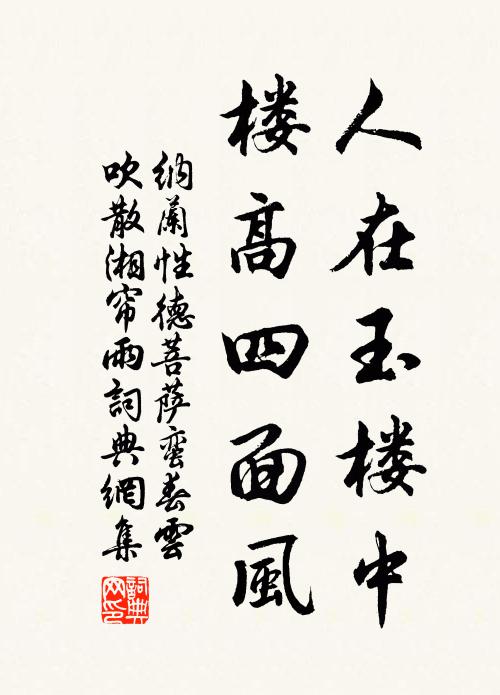 人在玉楼中
楼高四面風
纳蘭性德菩萨蛮春雲
吹散湘帘雨詞典網集
詞典
网印